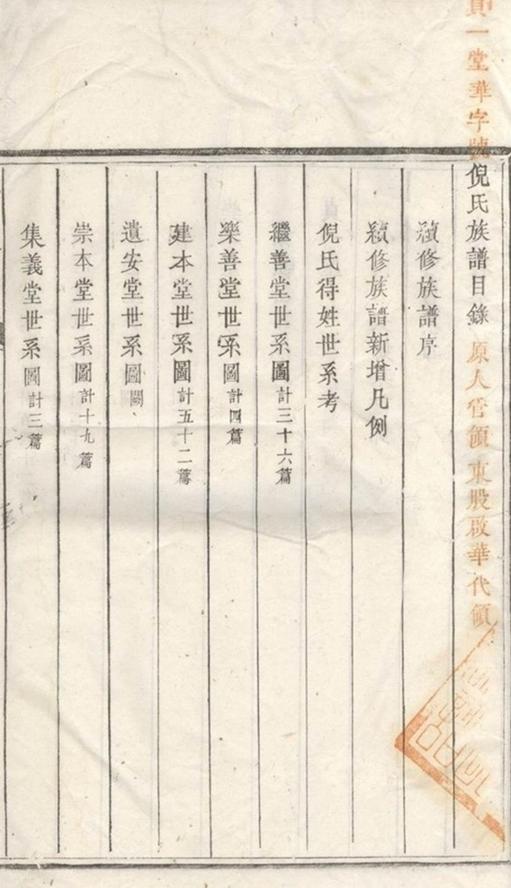 貞一堂華字號倪氏族譜目錄 原人管領 東股啟華代領
續修族譜序
續修族譜新增凡例
倪氏得姓世系考
繼善堂世系圖計三十六篇
樂善堂世系圖計四篇
建本堂世系圖計五十二篇
遺安堂世系圖闕
崇本堂世系圖計十九篇
集義堂世系圖計三篇